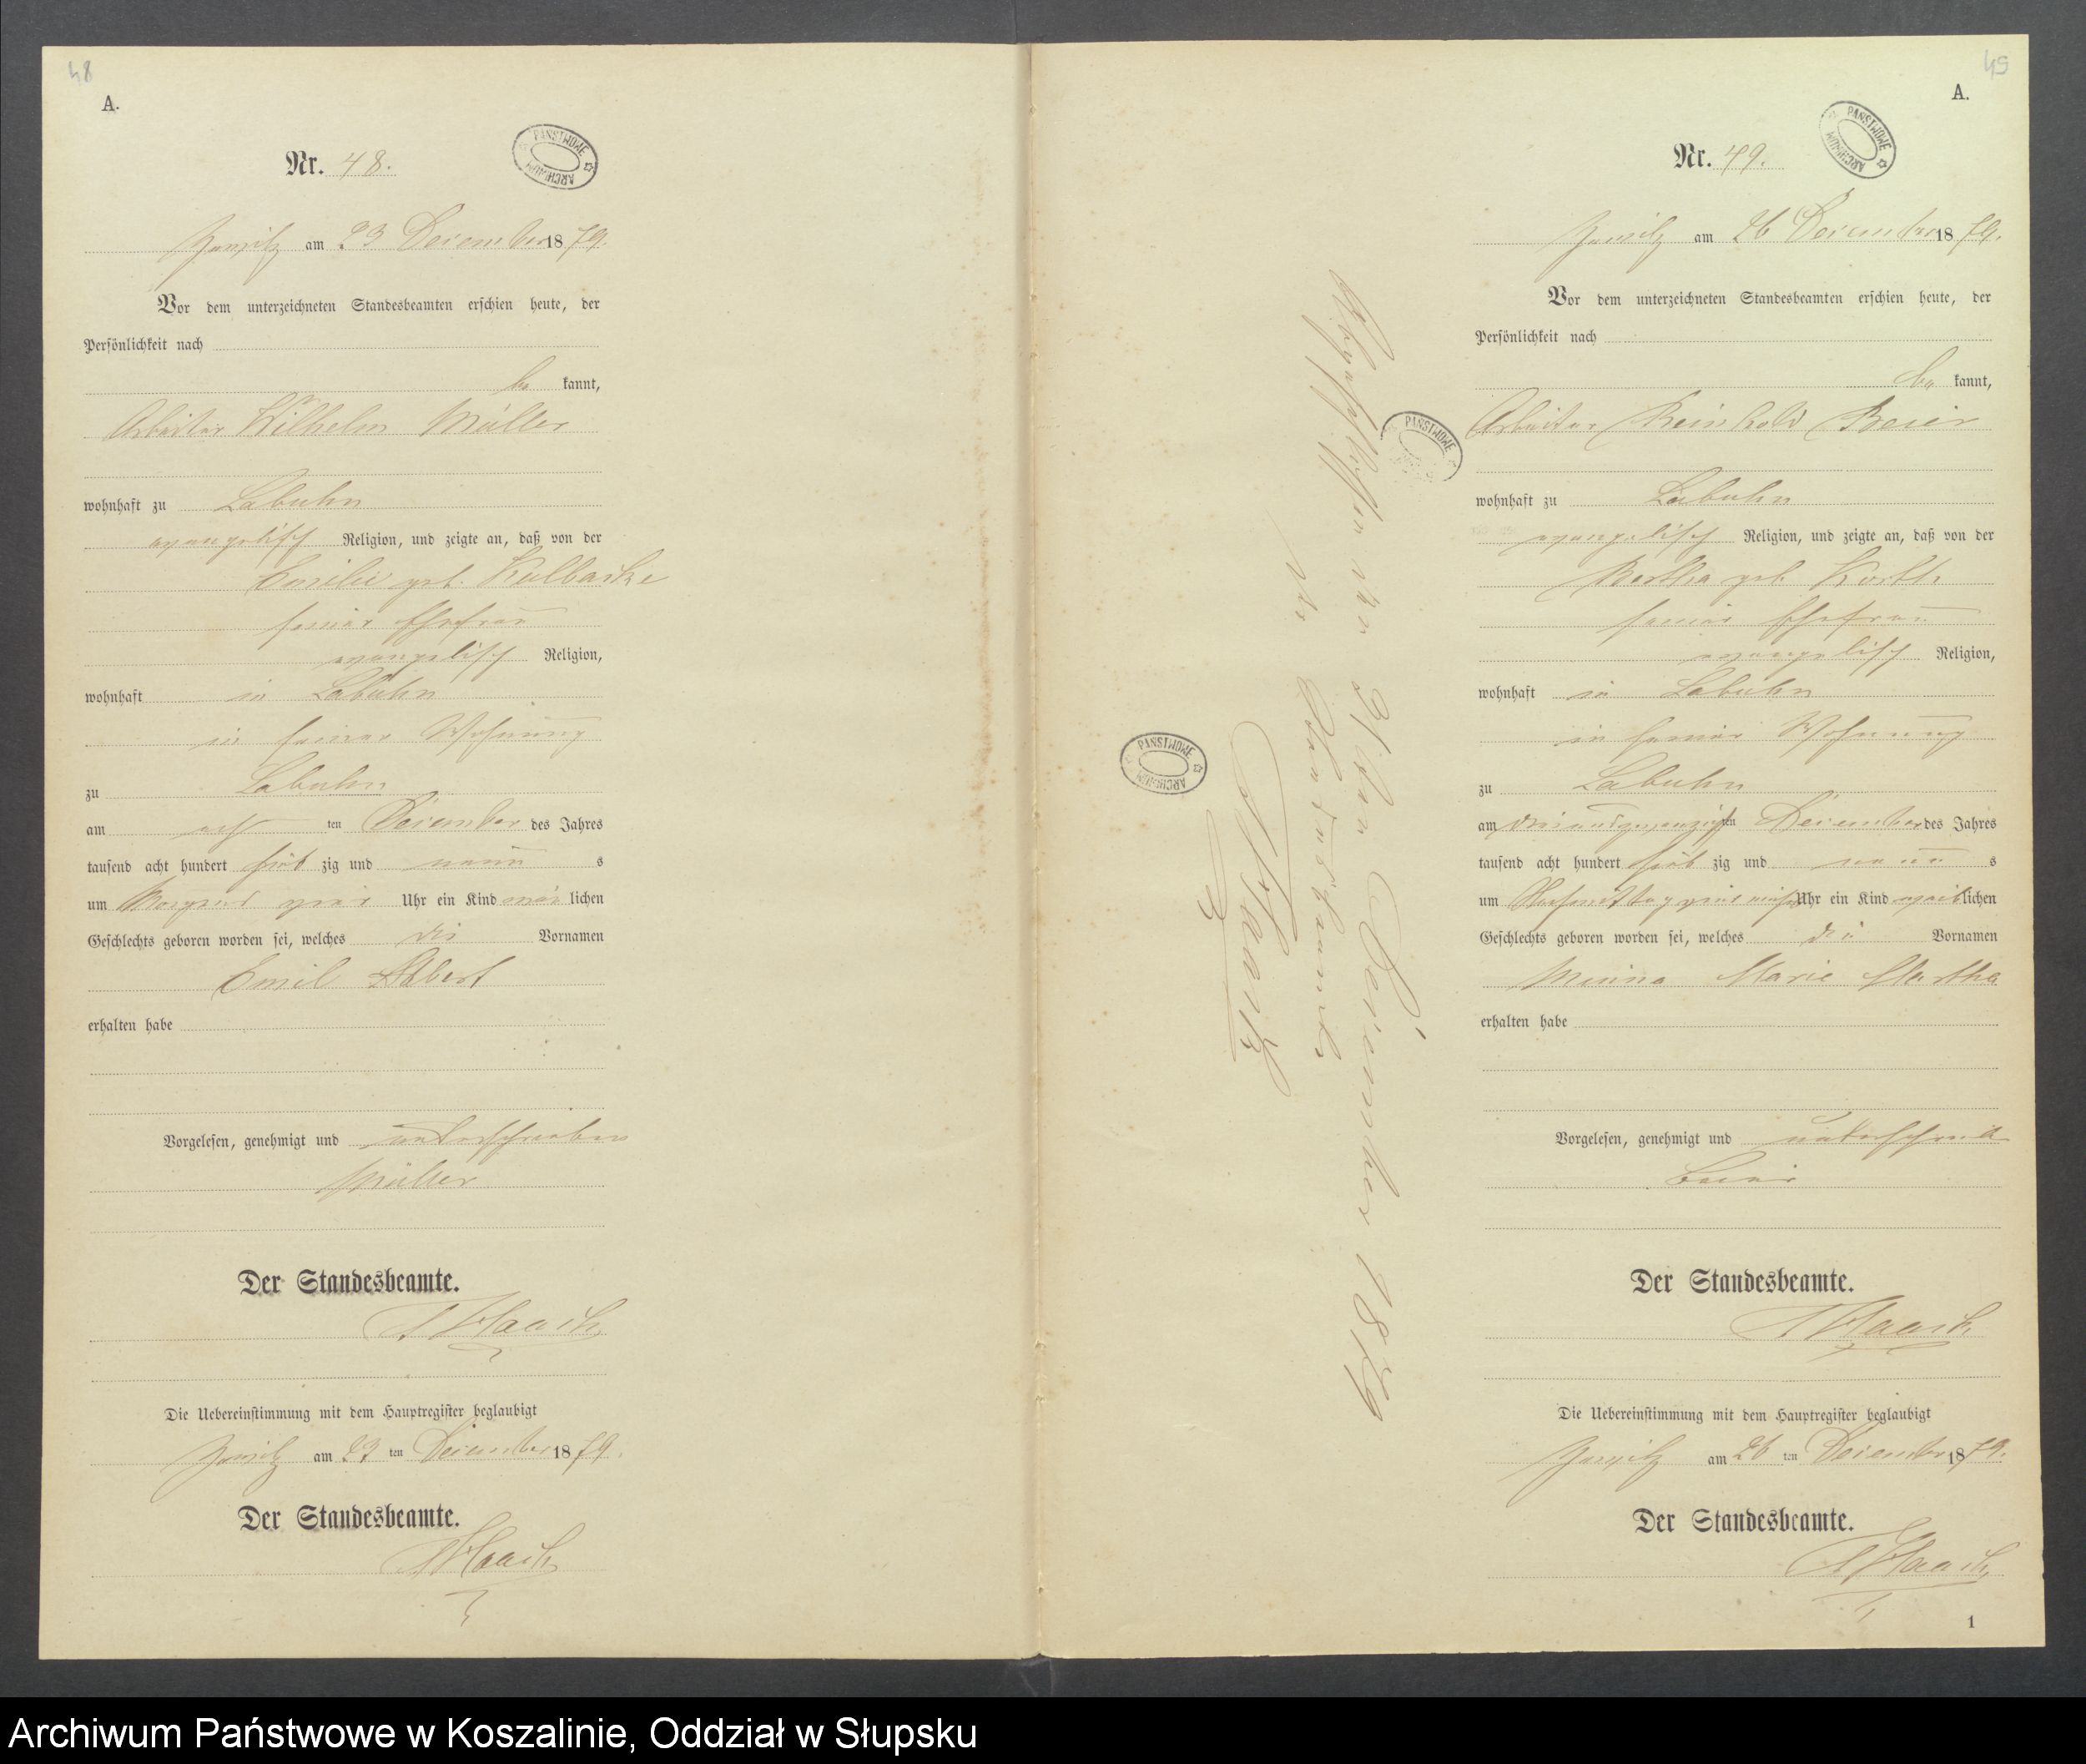 48
A.
Nr. 48.
PAŃSTWOWE ARCHIWUM
am 23 Dezember 1879.
Vor dem unterzeichneten Standesbeamten erschien heute, der
Persönlichkeit nach
be kannt,
Arbeiter Wilhelm Müller
wohnhaft zu Labuhn
evangelisch Religion, und zeigte an, daß von der
Emilie geb.
seiner Ehefrau
evangelisch Religion,
wohnhaft in Labuhn
in seiner Wohnung
zu Labuhn
am ten Dezember des Jahres
tausend acht hundert sieb zig und neun s
um Morgens Uhr ein Kind männlichen
Geschlechts geboren worden sei, welches die Vornamen
Emil Albert
erhalten habe
Vorgelesen, genehmigt und unterschrieben
Müller
Der Standesbeamte.
Die Uebereinstimmung mit dem Hauptregister beglaubigt
am 23 ten Dezember 1879.
Der Standesbeamte.
PAŃSTWOWE ARCHIWUM
PAŃSTWOWE
Abgeschlossen den 31ten Dezember 1879
Der Standesbeamte
49
A.
Nr. 49.
PAŃSTWOWE ARCHIWUM
am 26 Dezember 1879.
Vor dem unterzeichneten Standesbeamten erschien heute, der
Persönlichkeit nach
be kannt,
Arbeiter Reinhold Beier
wohnhaft zu Labuhn
evangelisch Religion, und zeigte an, daß von der
Bertha geb Korth
seiner Ehefrau
evangelisch Religion,
wohnhaft in Labuhn
in seiner Wohnung
zu Labuhn
am dreiundzwanzigsten Dezember des Jahres
tausend acht hundert sieb zig und neun s
um Nachmittag Uhr ein Kind weiblichen
Geschlechts geboren worden sei, welches die Vornamen
Minna Marie Martha
erhalten habe
Vorgelesen, genehmigt und
Beier
Der Standesbeamte.
Die Uebereinstimmung mit dem Hauptregister beglaubigt
am 26 ten Dezember 1879.
Der Standesbeamte.
1
Archiwum Państwowe w Koszalinie, Oddział w Słupsku